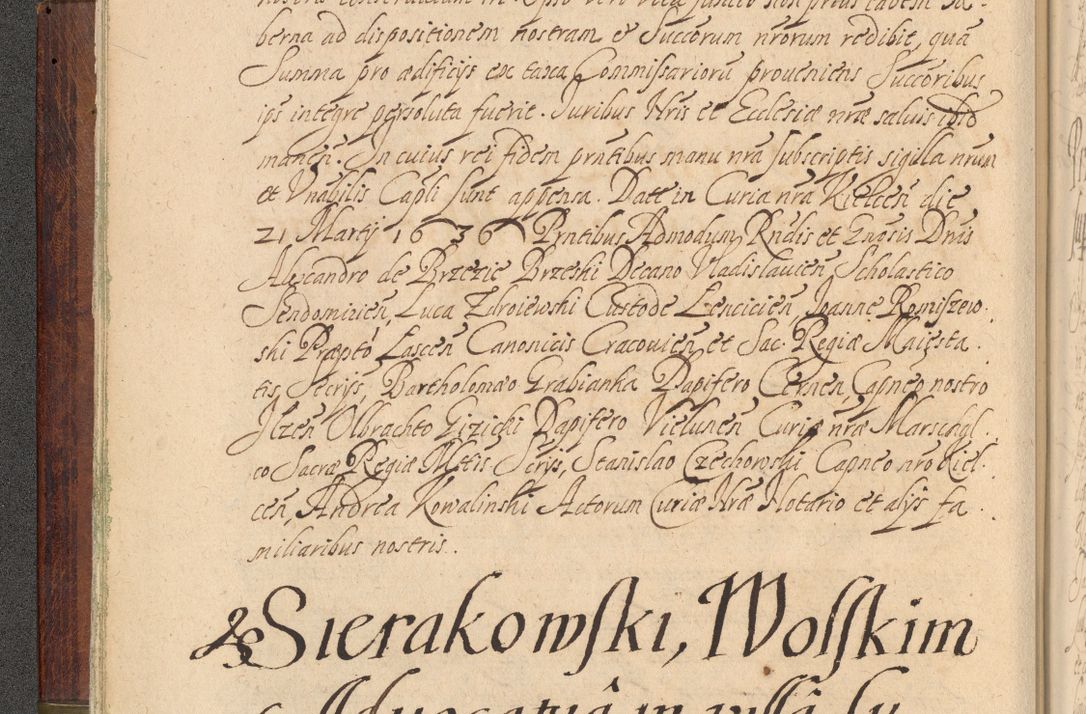 berna ad dispositionem nostram et Succorum nrorum redibit, quā
Summa pro ædificijs ex taxa Commissarioru proueniens Succoribus
ips integre persoluta fuerit. Iuribus Nris et Ecclesiæ nræ saluis ibid
manen. In cuius rei fidem prntibus manu nra subscriptis sigilla nrum
et Vnabilis Capli sunt appensa. Datt in Curia nra Kielcen die
21 Martij 1636 Prntibus Admodum Rndis et Gnosis Dnis
Alexandro de Brzezie Brzeski Decano Vladislauien, Scholastico
Sendomirien, Luca Zdroiewski Custode Lencicien, Joanne Romiszew.
ski Præpto Lascen Canonicis Cracouien et Sac. Regiæ Maiesta.
tis, Secrijs, Bartholomæo Grabianka Dapifero Cernen, Capneo nostro
Jlzen Olbrachto Gizicki Dapifero Vielunen Curiæ nræ Marscagl.
co Sacræ Regiæ Mttis Scrijs, Stanislao Czechowski Capneo nro Kiel.
cen, Andrea Kowalinski Actorum Curiæ Nræ Notario et alijs fa.
miliaribus nostris.
Sierakowski, Wolsskim
Aduocatiā in villa